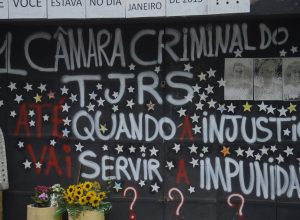 E VOCÊ ESTAVA NO DIA JANEIRO DE 2013
1 CÂMARA CRIMINAL DO
TJRS
ATÉ QUANDO A INJUSTI
VAI SERVIR A IMPUNIDA
? ? ?